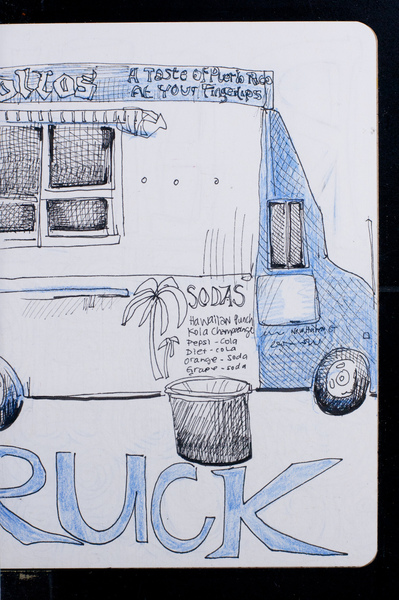 A Taste of Puerto Rico
At Your Fingertips
SODAS
Hawaiian Punch
Kola Champange
Pepsi - Cola
Diet - cola
Orange - Soda
Grape - soda
RUCK